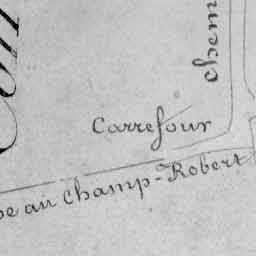 Carrefour
au Champ-Robert